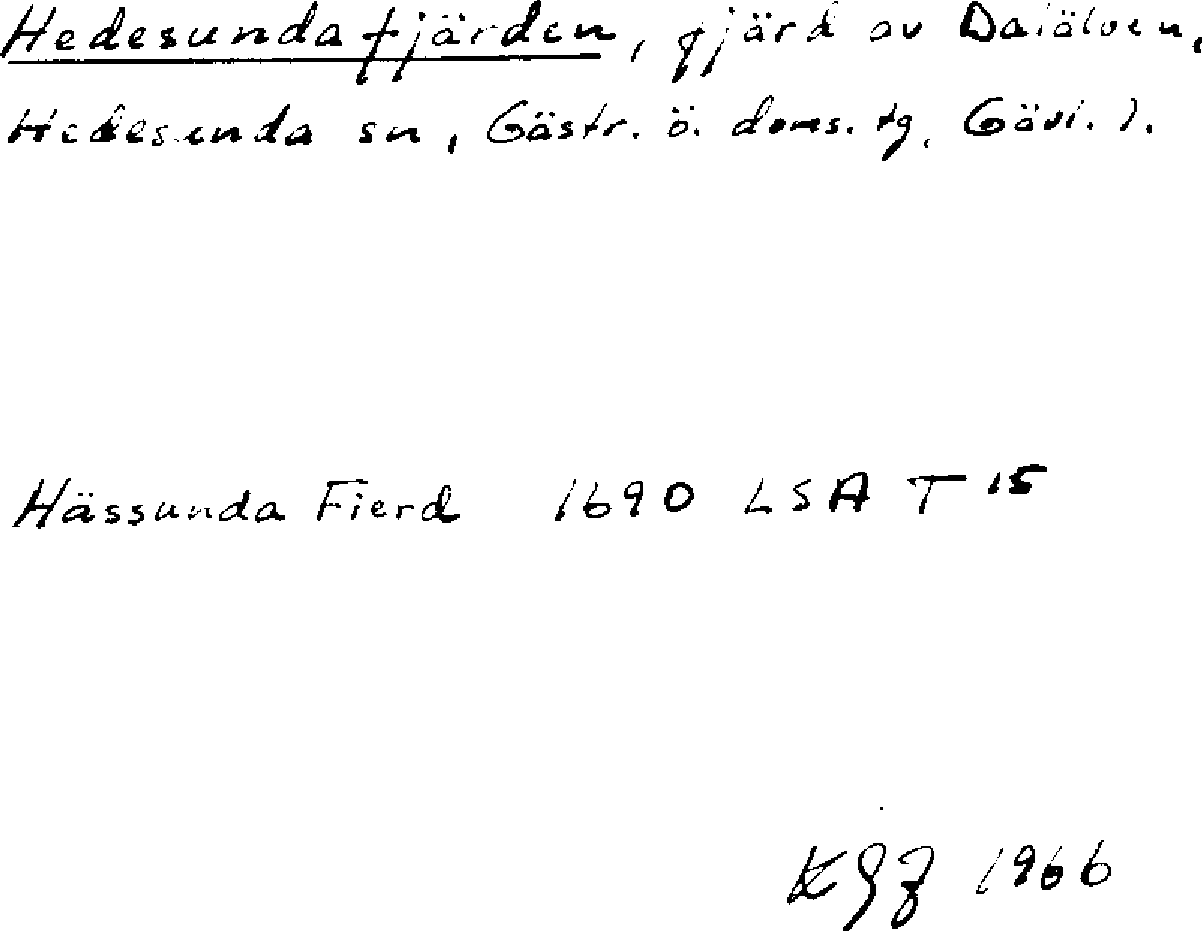 Hedesundafjärden, fjärd av Dalälven,
Hedesunda sn, Gästr. ö. doms. tg, Gävl. l.
Hässunda Fierd 1690 LSA T 15
1966